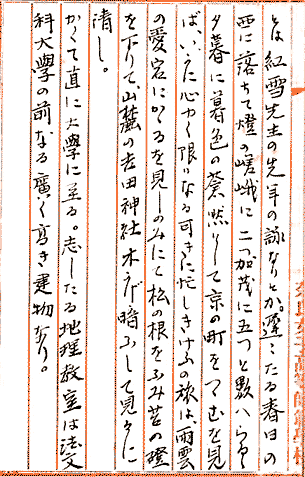 とは紅雪先生の先年の詠なりとか。遲々たる春日の
西に落ちて燈の嵯峨に二つ加茂に五つと數へらるゝ
夕暮に暮色の蒼然として京の町をつゝむを見
ば、いかに心ゆく限りなる可きに忙しきけふの旅は、雨雲
の愛宕にかゝるを見しのみにて松の根をふみ苔の磴
を下りて、山麓の吉田神社木立暗うして見るに
清し。
かくて直に大學に至る。志したる地理教室は法文
科大學の前なる廣く高き建物なり。